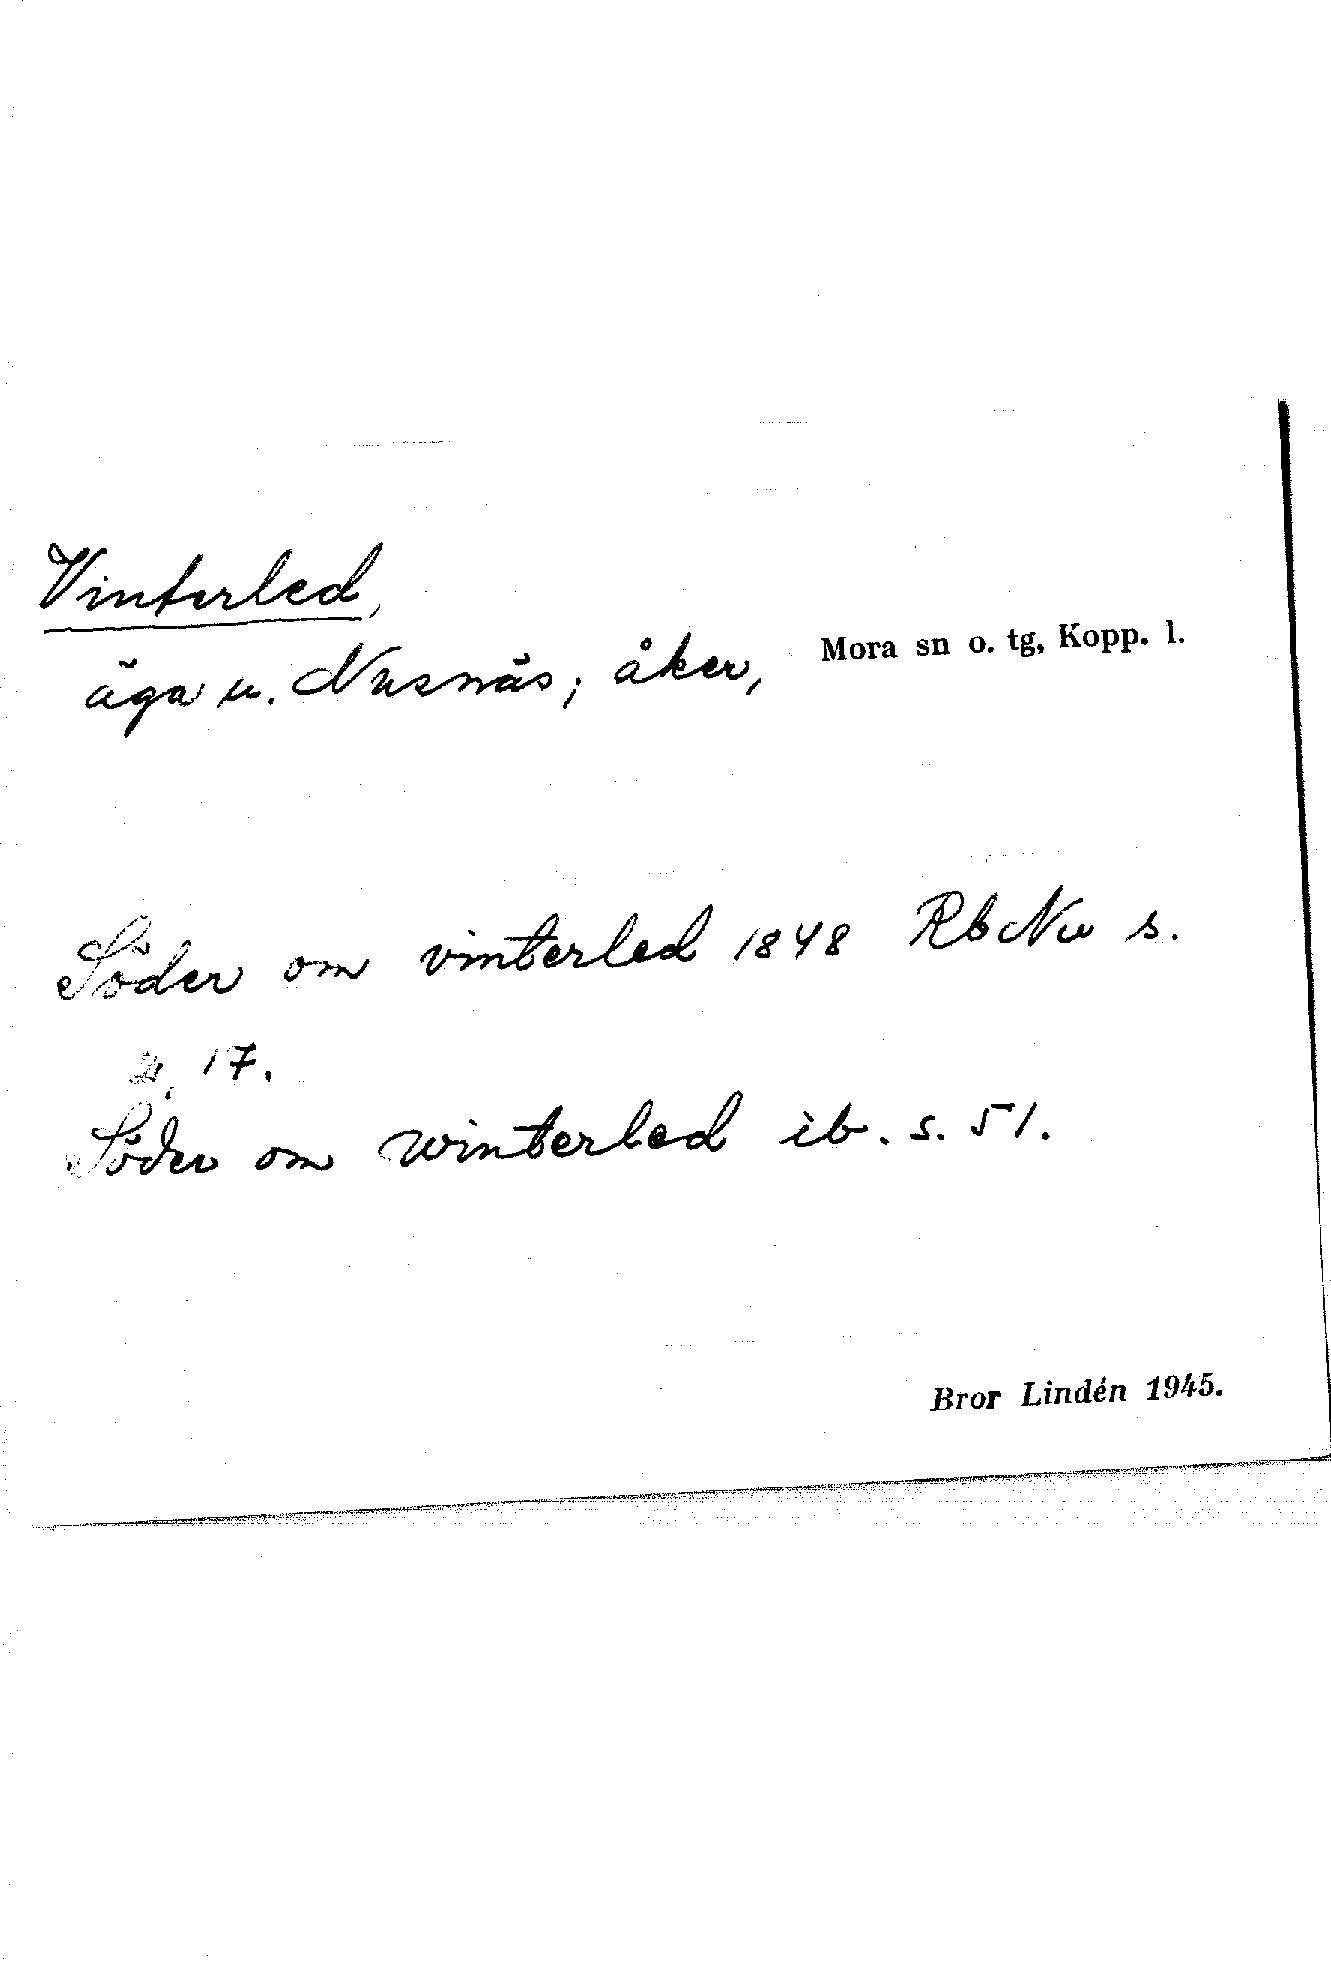 Vinterled,
äga u. Nusnäs; åker, Mora sn o. tg, Kopp. l.
Söder om vinterled 1848 RbNu s.
17.
Söder om winterled ib. s. 51.
Bror Lindén 1945.